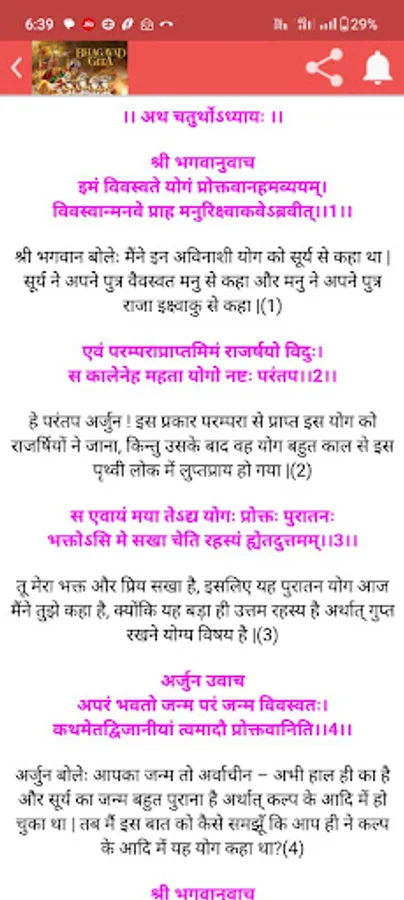 6:39
29%
BHAGAVAD
GEETA
।। अथ चतुर्थोऽध्यायः ।।
श्री भगवानुवाच
इमं विवस्वते योगं प्रोक्तवानहमव्ययम्।
विवस्वान्मनवे प्राह मनुरिक्ष्वाकवेऽब्रवीत्।।1।।
श्री भगवान बोलेः मैंने इन अविनाशी योग को सूर्य से कहा था |
सूर्य ने अपने पुत्र वैवस्वत मनु से कहा और मनु ने अपने पुत्र
राजा इक्ष्वाकु से कहा |(1)
एवं परम्पराप्राप्तमिमं राजर्षयो विदुः।
स कालेनेह महता योगो नष्टः परंतप।।2।।
हे परंतप अर्जुन ! इस प्रकार परम्परा से प्राप्त इस योग को
राजर्षियों ने जाना, किन्तु उसके बाद वह योग बहुत काल से इस
पृथ्वी लोक में लुप्तप्राय हो गया |(2)
स एवायं मया तेऽद्य योगः प्रोक्तः पुरातनः
भक्तोऽसि मे सखा चेति रहस्यं ह्येतदुत्तमम्।।3।।
तू मेरा भक्त और प्रिय सखा है, इसलिए यह पुरातन योग आज
मैंने तुझे कहा है, क्योंकि यह बड़ा ही उत्तम रहस्य है अर्थात् गुप्त
रखने योग्य विषय है |(3)
अर्जुन उवाच
अपरं भवतो जन्म परं जन्म विवस्वतः।
कथमेतद्विजानीयां त्वमादौ प्रोक्तवानिति।।4।।
अर्जुन बोलेः आपका जन्म तो अर्वाचीन – अभी हाल ही का है
और सूर्य का जन्म बहुत पुराना है अर्थात् कल्प के आदि में हो
चुका था | तब मैं इस बात को कैसे समझूँ कि आप ही ने कल्प
के आदि में यह योग कहा था?(4)
श्री भगवानुवाच